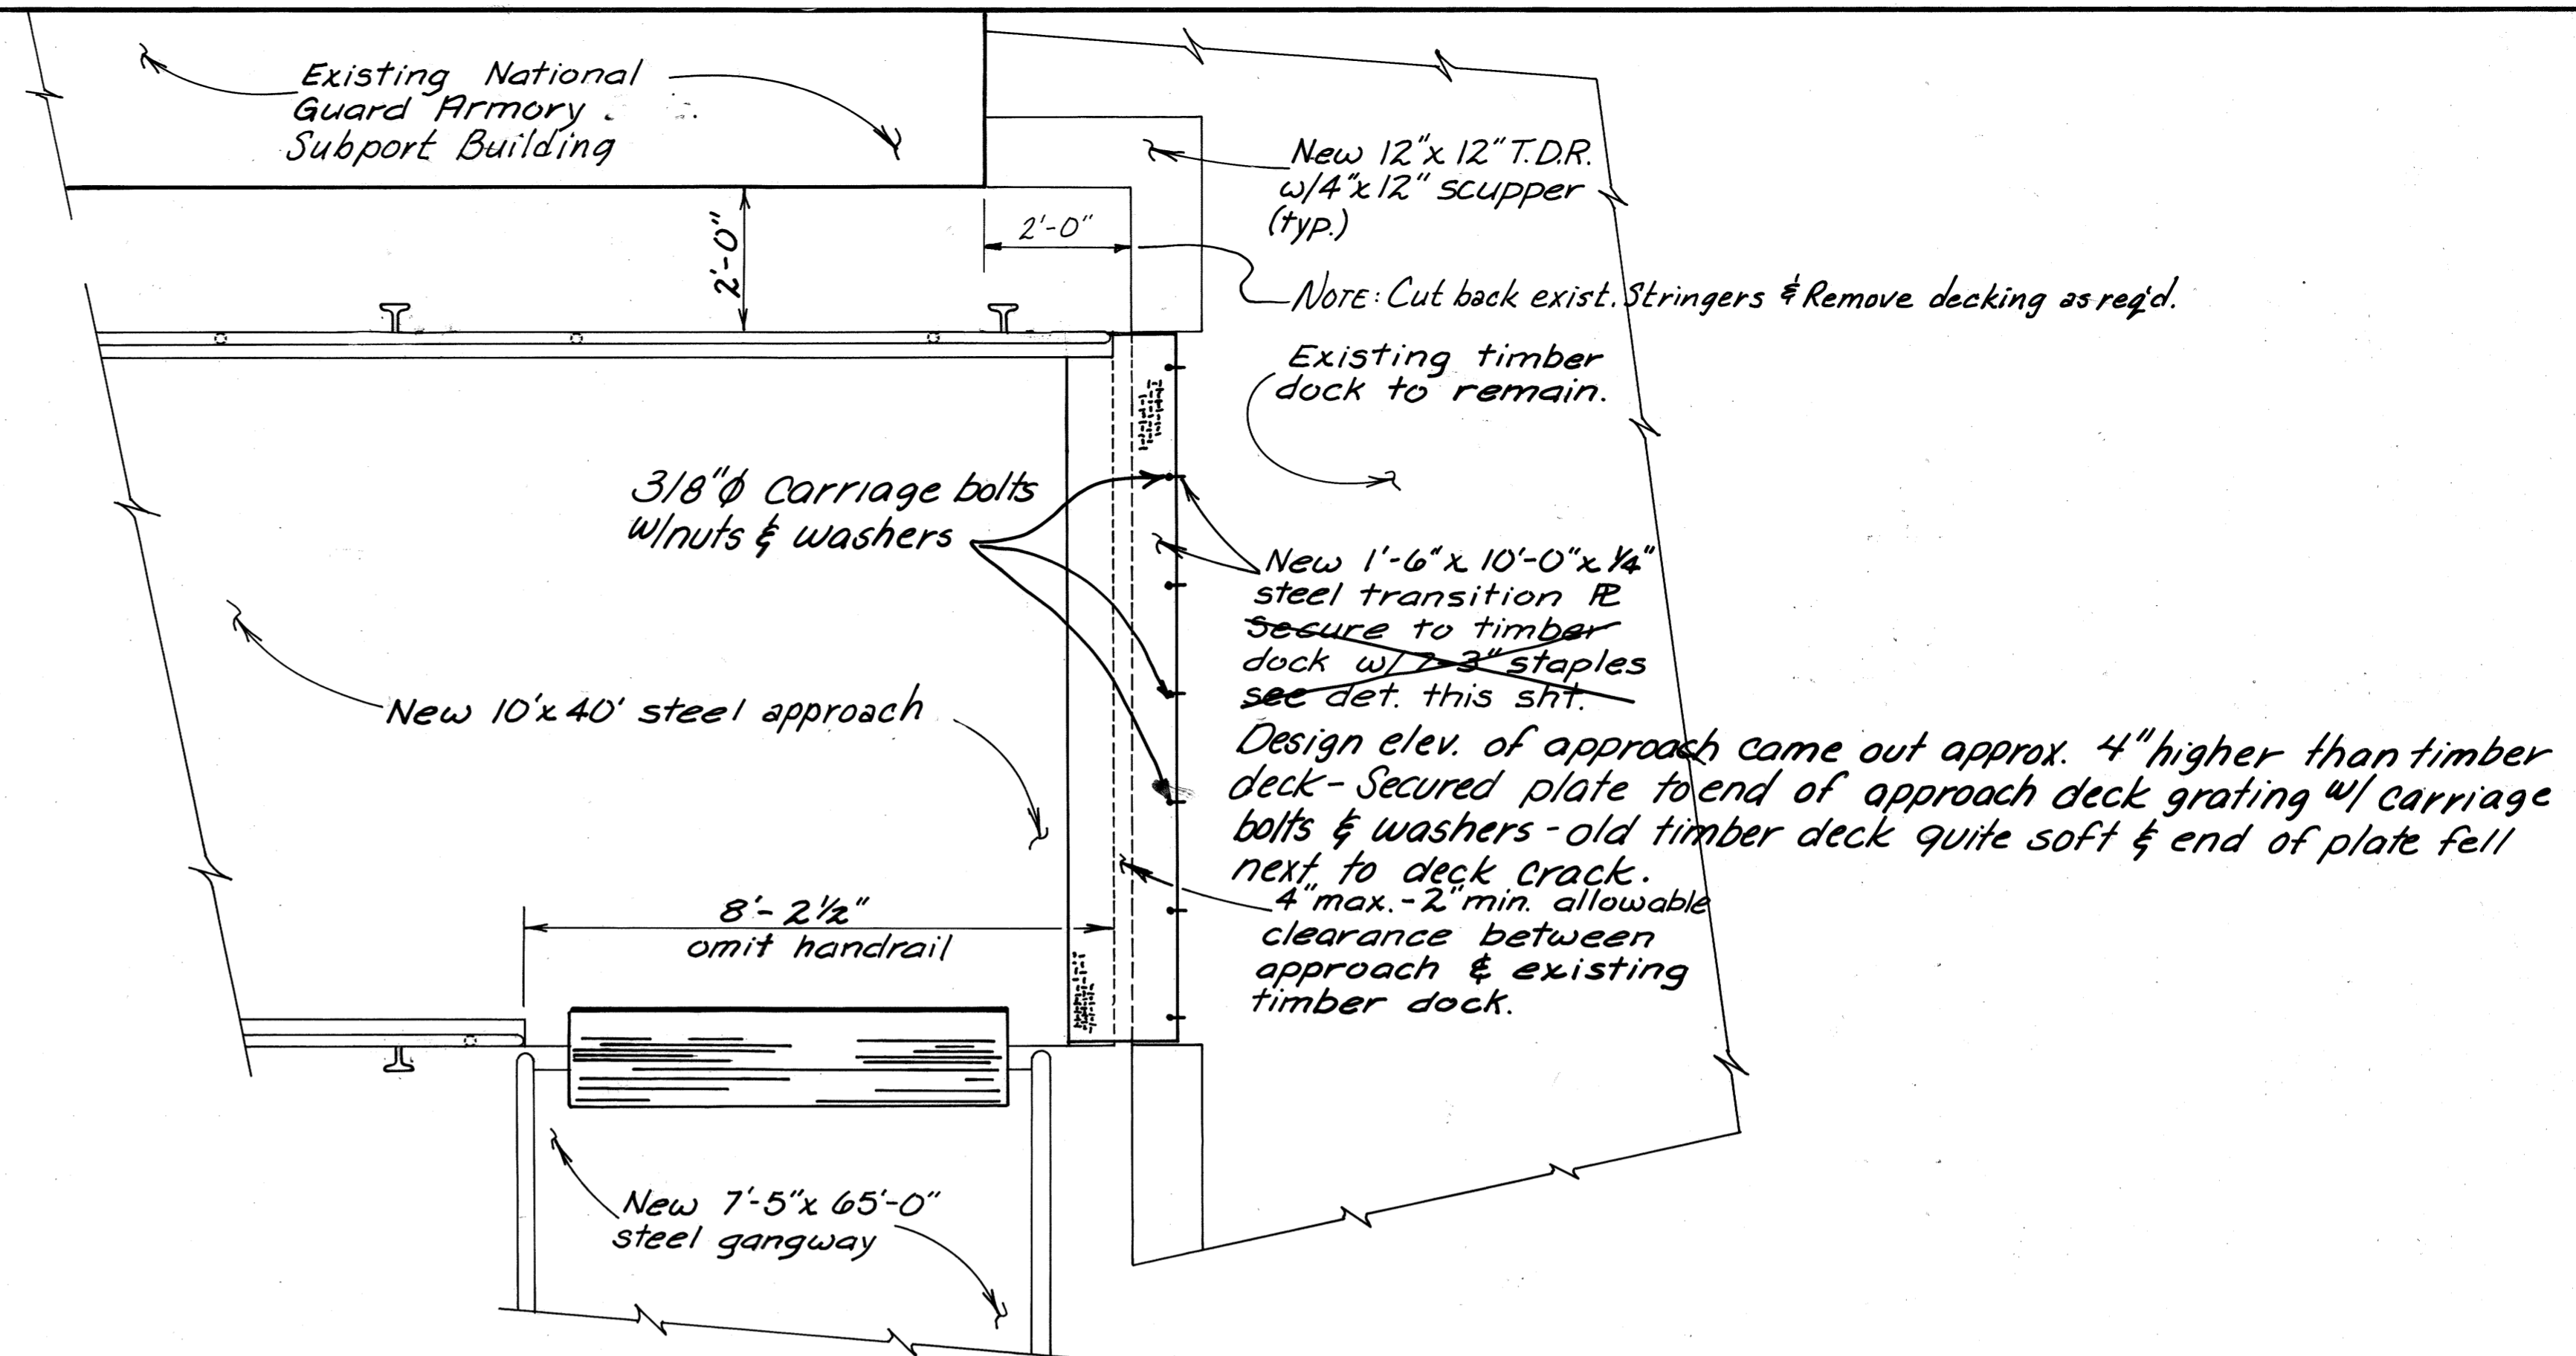 Existing National
Guard Armory
Subport Building
2'-0"
2'-0"
New 12"x 12" T.D.R.
w/4"x 12" scupper
(typ.)
NOTE: Cut back exist. Stringers & Remove decking as req'd.
Existing timber
dock to remain.
3/8"ϕ Carriage bolts
w/nuts & washers
New 1'-6"x 10'-0"x 1/4"
steel transition PL
Secure to timber
dock w/ 7-3" staples
see det. this sht.
New 10'x 40' steel approach
Design elev. of approach came out approx. 4" higher than timber
deck - Secured plate to end of approach deck grating w/ carriage
bolts & washers - old timber deck quite soft & end of plate fell
next to deck crack.
4" max. - 2" min. allowable
clearance between
approach & existing
timber dock.
8'- 2 1/2"
omit handrail
New 7'-5"x 65'-0"
steel gangway